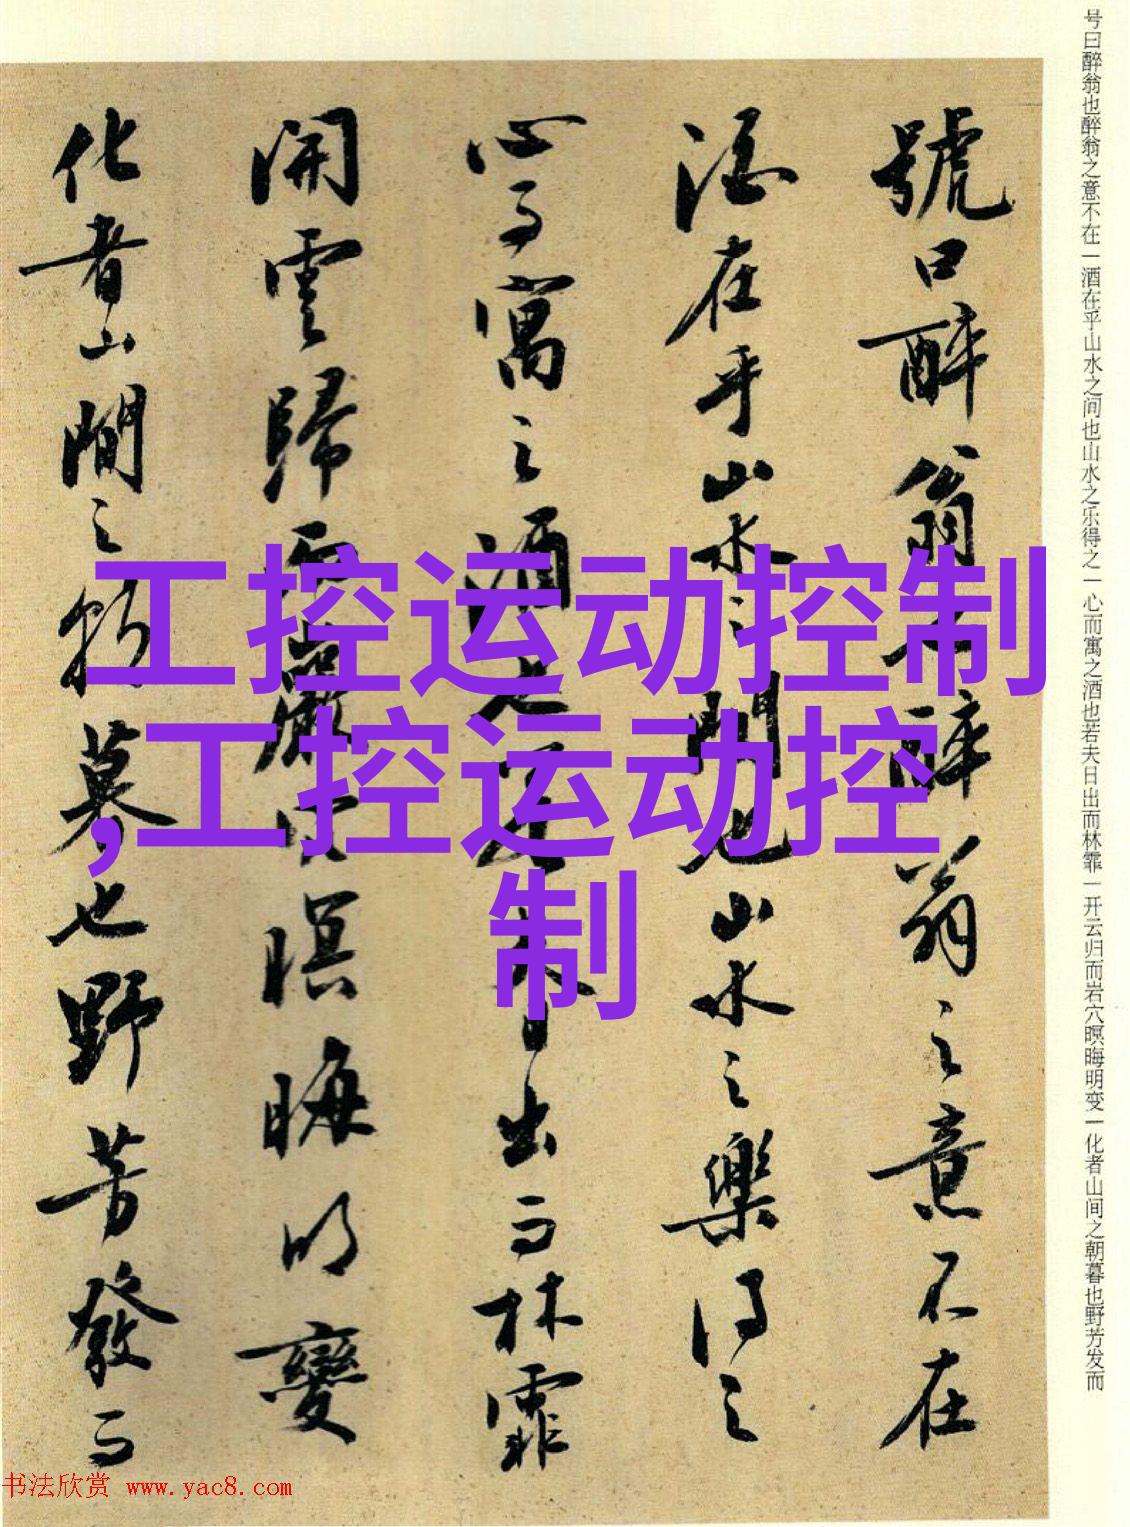 号曰醉翁也醉翁之意不在一酒在乎山水之间也山水之乐得之一心而寓之酒也若夫日出而林霏一开云归而岩穴暝晦明变一化者山间之朝暮也野芳发而
號曰醉翁也醉翁之意不在
酒在乎山水之間也山水之樂得之
心而寓之酒也若夫日出而林霏
開雲歸而巖穴暝晦明變
化者山間之朝暮也野芳發而
工控运动控制
,工控运动控
制
书法欣赏 www.yac8.com